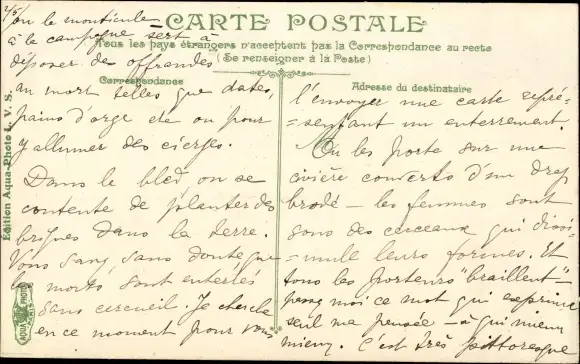 2/5/
ou le monticule
à la campagne sert à
déposer des offrandes
CARTE POSTALE
Tous les pays étrangers n'acceptent pas la Correspondance au recto
(Se renseigner à la Poste)
Correspondance
Adresse du destinataire
au mort telles que dates,
pains d'orge etc ou pour
y allumer des cierges.
Dans le bled on se
contente de planter des
briques dans la terre.
Vous savez sans doute que
les morts sont enterrés
sans cercueil. Je cherche
en ce moment pour vous
l'envoyer une carte repré-
=sentant un enterrement.
On les porte sur une
civière couverte d'un drap
brodé - les femmes sont
sous des cerceaux qui dissi-
=mule leurs formes. Et
tous les porteurs "braillent" -
moi ce mot qui exprime
seul ma pensée - à qui mieux
mieux. C'est très pittoresque
Édition Aqua-Photo L. V. S.
AQUA PHOTO
PARIS